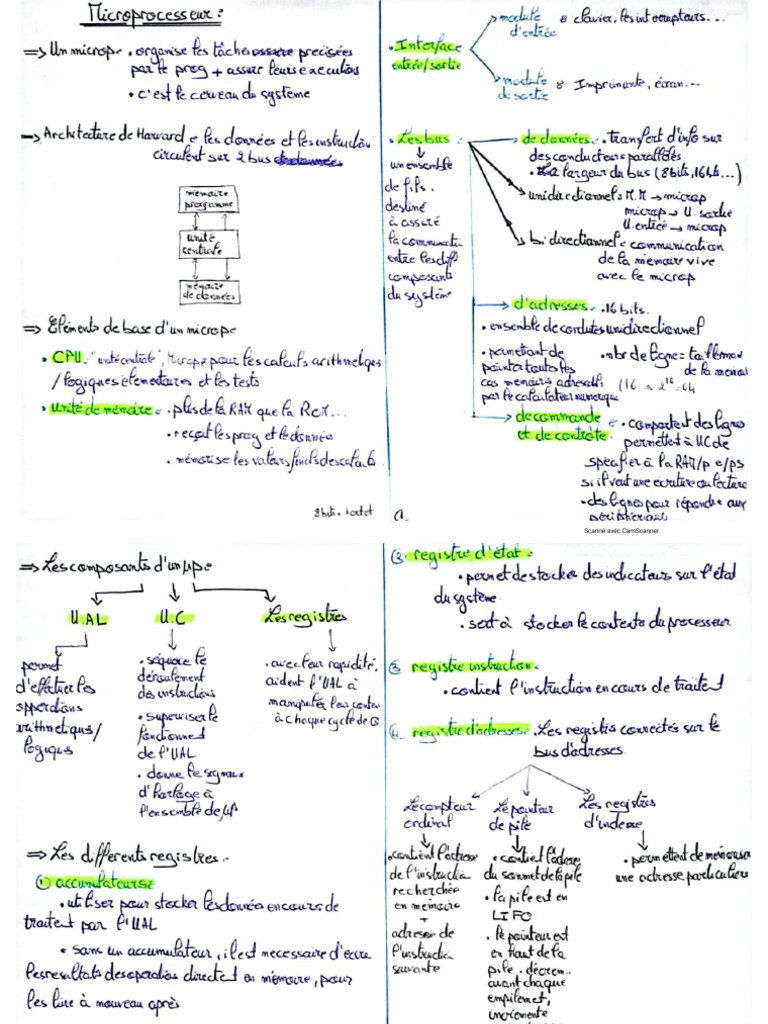 Microprocesseur :
⇒ Un microp • organise les tâches precisées
par le prog + assure leurs execution
• c'est le cerveau du système
→ Architecture de Harward • les données et les instruction
circulent sur 2 bus
memoire
programme
unité
centrale
mémoire
de données
⇒ Eléments de base d'un microp
• CPU "unité centrale", Microp pour les calculs arithmetiqes
/ logiques elementaires et les tests
• Unité de memoire • plus de la RAM que la ROM...
• reçoit les prog et le donnée
• mémorise les valeurs finals des calculs
8 bits = 1 octet
• Interface
entrée/sortie
module
d'entrée : clavier, les interrupteurs...
module
de sortie : Imprimante, écran...
• Les bus
un ensemble
de fils.
destiné
à assuré
la communicatio
entre les diff
composants
du système
de données • transfert d'info sur
des conducteurs parallèles.
• largeur du bus (8 bits, 16 bits...)
unidirectionnel = M.M → microp
microp → U. sortie
U. entrée → microp
bi directionnel = communication
de la memoire vive
avec le microp
d'adresses • 16 bits.
• ensemble de conduites unidirectionnel
• permettant de
pointer toutes les
cas memoirs adressabl
par le calculateur numerique
• nbr de ligne = taille man
de la memoi
(16 → 2^16 = 64
de commande
et de contrôle • comportent des lignes
permettent à UC de
specifier à la RAM/p e/ps
si il veut une ecriture ou lecture
• des lignes pour répondre aux
périphériques
1.
Scanné avec CamScanner
⇒ Les composants d'un µpc
U.AL
U.C
Les registres
permet
d'effectuer les
opperations
arithmetiqus/
logiqus
• séquace le
déroulement
des instructions
• superviser le
fonctionnemt
de l'UAL
• donne le signaux
d'horloge à
l'ensemble de µP
• avec leur rapidité,
aident l'UAL à
manipuler leur contenu
à chaque cycle de
⇒ Les differents registres :
① accumulateurs :
• utiliser pour stocker les données en cours de
traitemt par l'UAL
• sans un accumulateur, il est necessaire d'écrire
les resultats des operations directemt en mémoire, pour
les lire à nouveau après
② registre d'état :
• permet de stocker des indicateurs sur l'état
du système
• sert à stocker le contexte du processeur
③ registre instruction :
• contient l'instruction en cours de traitemt
④ registre d'adresses . Les registrs connectés sur le
bus d'adresses
Le compteur
ordinal
Le pointeur
de pile
Les registres
d'indexe
• contient l'adresse
de l'instructio
recherchée
en memoire
+
adresse de
l'instructio
suivante
• contient l'adresse
du sommet de la pile
• la pile est en
LIFO
• le pointeur est
en haut de la
pile . décrem.
avant chaque
empilemet,
incremente
• permettent de memoriser
une adresse particuliere